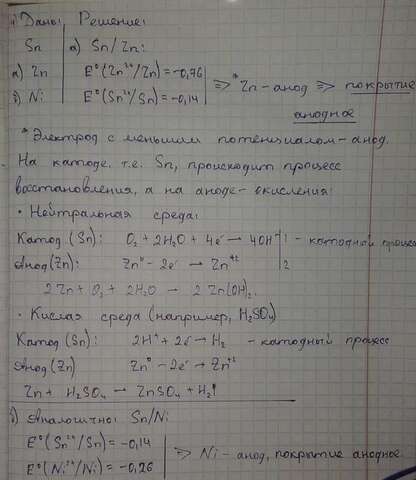 Дано: Решение:
Sn а) Sn/Zn:
а) Zn E⁰(Zn²⁺/Zn) = -0,76
б) Ni E⁰(Sn²⁺/Sn) = -0,14 => *Zn - анод => покрытие
анодное
* Электрод с меньшим потенциалом - анод.
На катоде, т.е. Sn, происходит процесс
восстановления, а на аноде - окисления:
• Нейтральная среда:
Катод (Sn): O₂ + 2H₂O + 4e⁻ → 4OH⁻ | 1 - катодный процесс
Анод (Zn): Zn⁰ - 2e⁻ → Zn⁺² | 2
2Zn + O₂ + 2H₂O → 2Zn(OH)₂.
• Кислая среда (например, H₂SO₄)
Катод (Sn): 2H⁺ + 2e⁻ → H₂ - катодный процесс
Анод (Zn) Zn⁰ - 2e⁻ → Zn⁺²
Zn + H₂SO₄ → ZnSO₄ + H₂↑
б) Аналогично: Sn/Ni
E⁰(Sn²⁺/Sn) = -0,14
E⁰(Ni²⁺/Ni) = -0,26 => Ni - анод, покрытие анодное.